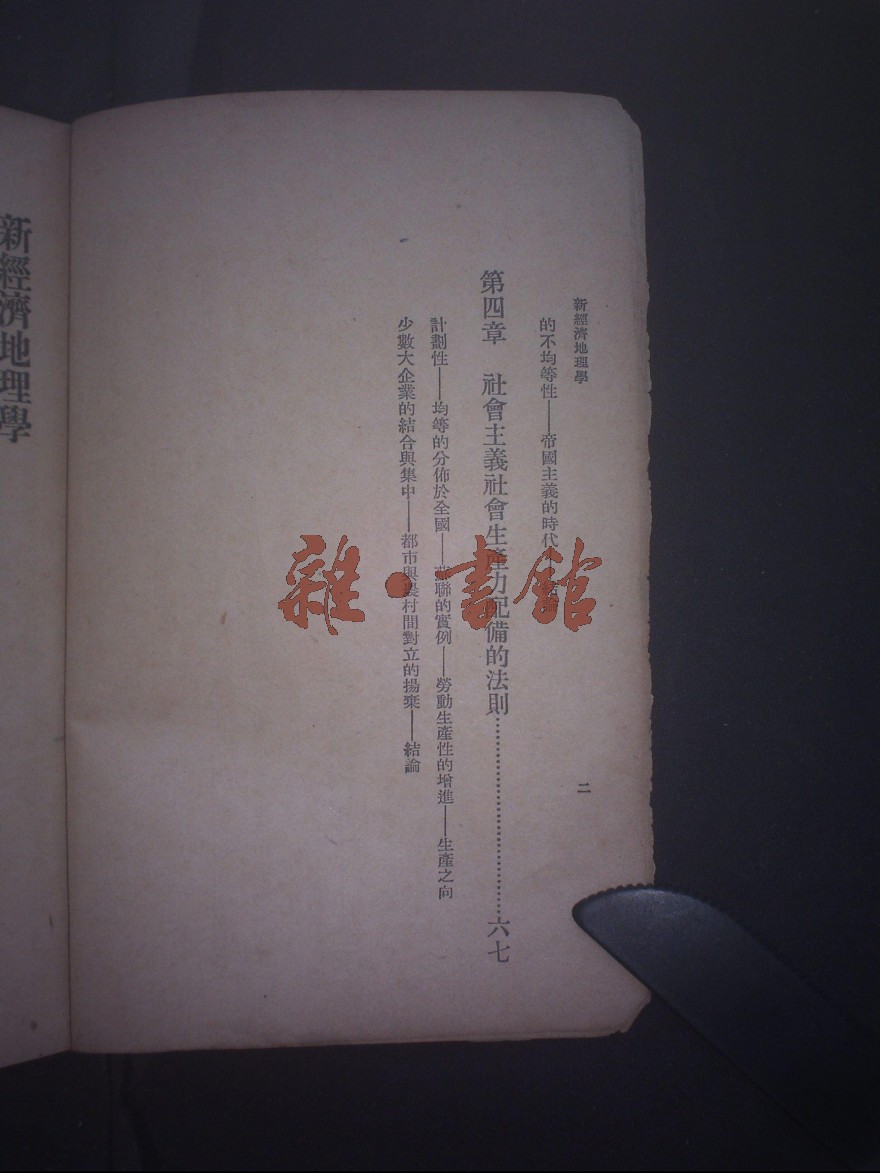 新經濟地理學
二
的不均等性——帝國主義的時代——結論
第四章　社會主義社會生產力配備的法則……………………六七
計劃性——均等的分佈於全國——蘇聯的實例——勞動生產性的增進——生產之向
少數大企業的結合與集中——都市與農村間對立的揚棄——結論
新經濟地理學
雜·書館